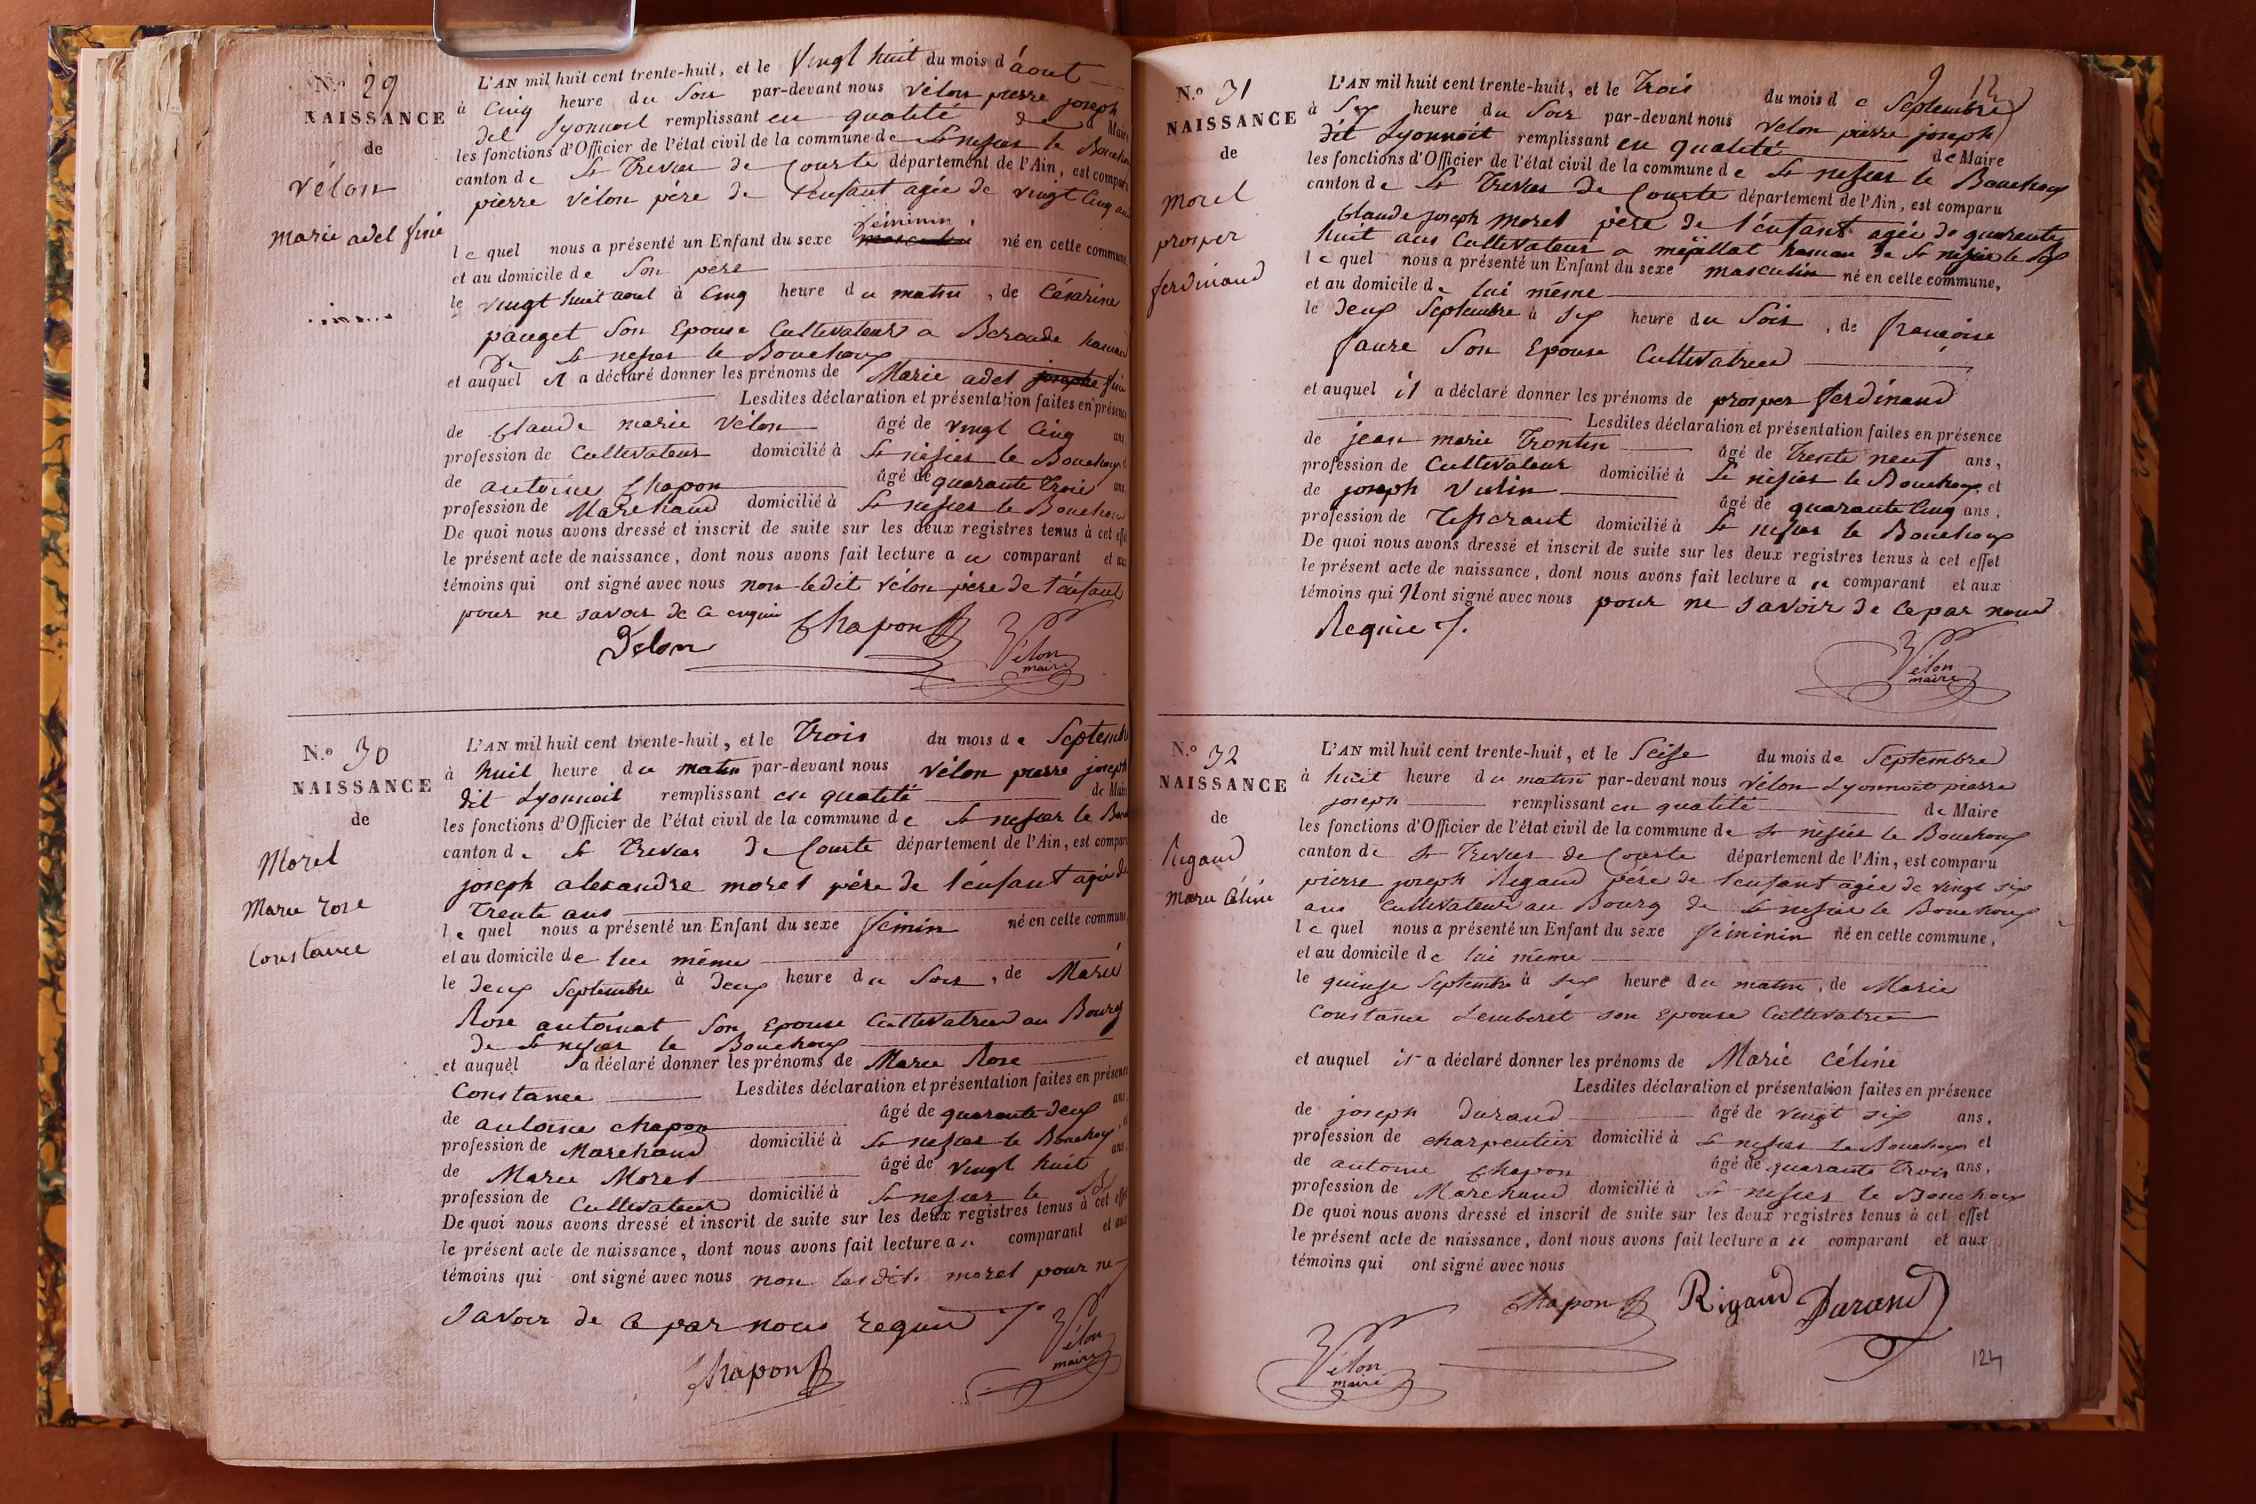 N.o 29
NAISSANCE
de
vélon
marie adel fine
L'AN mil huit cent trente-huit, et le vingt huit du mois d'aout
à cinq heure du soir par-devant nous vélon pierre joseph
dit Lyonnoit remplissant en qualité de Maire
les fonctions d'Officier de l'état civil de la commune de St nisier le Bouchoux
canton de St Trivier de Courte département de l'Ain, est comparu
pierre vélon pére de l'enfant agée de vingt cinq ans
féminin
lequel nous a présenté un Enfant du sexe masculin né en cette commune,
et au domicile de son pere
le vingt huit aout à cinq heure du matin, de Césarine
pauget son Epouse Cultivateurs a Beraude hameau
De St nisier le Bouchoux
et auquel il a déclaré donner les prénoms de Marie adel josephe fine
Lesdites déclaration et présentation faites en présence
de Claude marie vélon âgé de vingt cinq ans
profession de Cultivateur domicilié à St nisier le Bouchoux
de antoine Chapon âgé de quarante trois ans
profession de Marchand domicilié à St nisier le Bouchoux
De quoi nous avons dressé et inscrit de suite sur les deux registres tenus à cet effet
le présent acte de naissance, dont nous avons fait lecture a u comparant et aux
témoins qui ont signé avec nous non ledit vélon pére de l'enfant
pour ne savoir de ce enquis Chapon
Velon
Vélon
maire
N.o 30
NAISSANCE
de
Morel
Marie rose
Constance
L'AN mil huit cent trente-huit, et le Trois du mois de Septembre
à huit heure du matin par-devant nous vélon pierre joseph
dit Lyonnoit remplissant en qualité de Maire
les fonctions d'Officier de l'état civil de la commune de St nisier le Bou
canton de St Trivier de Courte département de l'Ain, est comparu
joseph alexandre morel pére de l'enfant agée de
Trente ans
lequel nous a présenté un Enfant du sexe féminin né en cette commune,
et au domicile de lui même
le deux Septembre à deux heure du soir, de Marie
Rose antoinat son Epouse Cultivatrice au Bourg
de St nisier le Bouchoux
et auquel il a déclaré donner les prénoms de Marie Rose
Constance Lesdites déclaration et présentation faites en présence
de antoine chapon âgé de quarante deux ans
profession de Marchand domicilié à St nisier le Bouchoux
de Marie Morel âgé de vingt huit ans
profession de Cultivateur domicilié à St nisier le
De quoi nous avons dressé et inscrit de suite sur les deux registres tenus à cet effet
le présent acte de naissance, dont nous avons fait lecture a u comparant et aux
témoins qui ont signé avec nous non lesdits morel pour ne
savoir de ce par nous requis
Vélon
maire
Chapon
9 12
N.o 31
NAISSANCE
de
morel
prosper
ferdinand
L'AN mil huit cent trente-huit, et le Trois du mois de Septembre
à Six heure du Soir par-devant nous vélon pierre joseph
dit Lyonnoit remplissant en qualité de Maire
les fonctions d'Officier de l'état civil de la commune de St nisier le Bouchoux
canton de St Trivier de Courte département de l'Ain, est comparu
Claude joseph morel pére de l'enfant agée de quarante
huit ans Cultivateur a mépillat hameau de St nisier le
lequel nous a présenté un Enfant du sexe masculin né en cette commune,
et au domicile de lui même
le deux Septembre à six heure du Soir, de françoise
faure son Epouse Cultivatrice
et auquel il a déclaré donner les prénoms de prosper ferdinand
Lesdites déclaration et présentation faites en présence
de jean marie Trontin âgé de Trente neuf ans,
profession de Cultivateur domicilié à St nisier le Bouchoux et
de joseph Vulin âgé de quarante cinq ans,
profession de Tisserant domicilié à St nisier le Bouchoux
De quoi nous avons dressé et inscrit de suite sur les deux registres tenus à cet effet
le présent acte de naissance, dont nous avons fait lecture a u comparant et aux
témoins qui N'ont signé avec nous pour ne savoir de ce par nous
Requie
Vélon
maire
N.o 32
NAISSANCE
de
Rigaud
marie Céline
L'AN mil huit cent trente-huit, et le Seise du mois de Septembre
à huit heure du matin par-devant nous vélon Lyonnoit pierre
joseph remplissant en qualité de Maire
les fonctions d'Officier de l'état civil de la commune de St nisier le Bouchoux
canton de St Trivier de Courte département de l'Ain, est comparu
pierre joseph Rigaud pére de l'enfant agée de vingt six
ans cultivateur au Bourg de St nisier le Bouchoux
lequel nous a présenté un Enfant du sexe féminin né en cette commune,
et au domicile de lui même
le quinze Septembre à six heure du matin, de Marie
Constance Lemberet son Epouse Cultivatrice
et auquel il a déclaré donner les prénoms de Marie Céline
Lesdites déclaration et présentation faites en présence
de joseph durand âgé de vingt six ans,
profession de charpentier domicilié à St nisier le Bouchoux et
de antoine Chapon âgé de quarante trois ans,
profession de Marchand domicilié à St nisier le Bouchoux
De quoi nous avons dressé et inscrit de suite sur les deux registres tenus à cet effet
le présent acte de naissance, dont nous avons fait lecture a u comparant et aux
témoins qui ont signé avec nous
Chapon Rigaud Durand
Vélon
maire
124